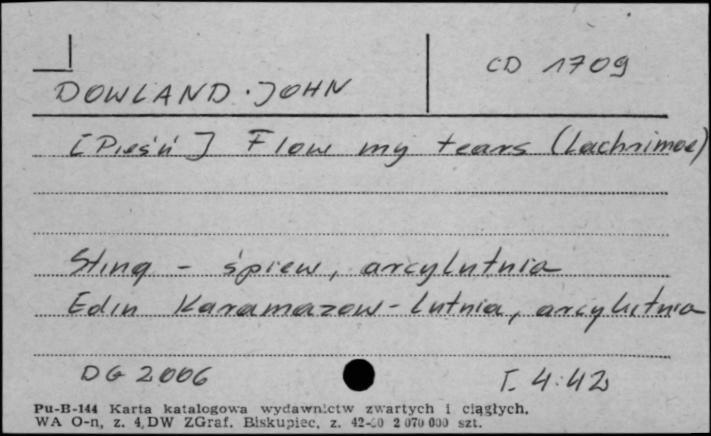 CD 1709
DOWLAND. JOHN
[Pieśń] Flow my tears (Lachrimae)
Sting - śpiew, arcylutnia
Edin Karamazow - lutnia, arcylutnia
DG 2006 T. 4:42
Pu-B-144 Karta katalogowa wydawnictw zwartych i ciągłych.
WA O-n, z. 4, DW ZGraf. Biskupiec, z. 2 070 000 szt.